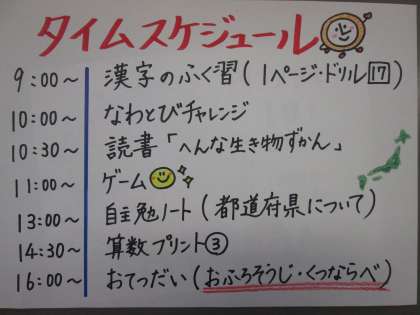 タイムスケジュール
9:00～ 漢字のふく習(1ページ・ドリル17)
10:00～ なわとびチャレンジ
10:30～ 読書「へんな生き物ずかん」
11:00～ ゲーム
13:00～ 自勉ノート(都道府県について)
14:30～ 算数プリント③
16:00～ おてつだい(おふろそうじ・くつならべ)